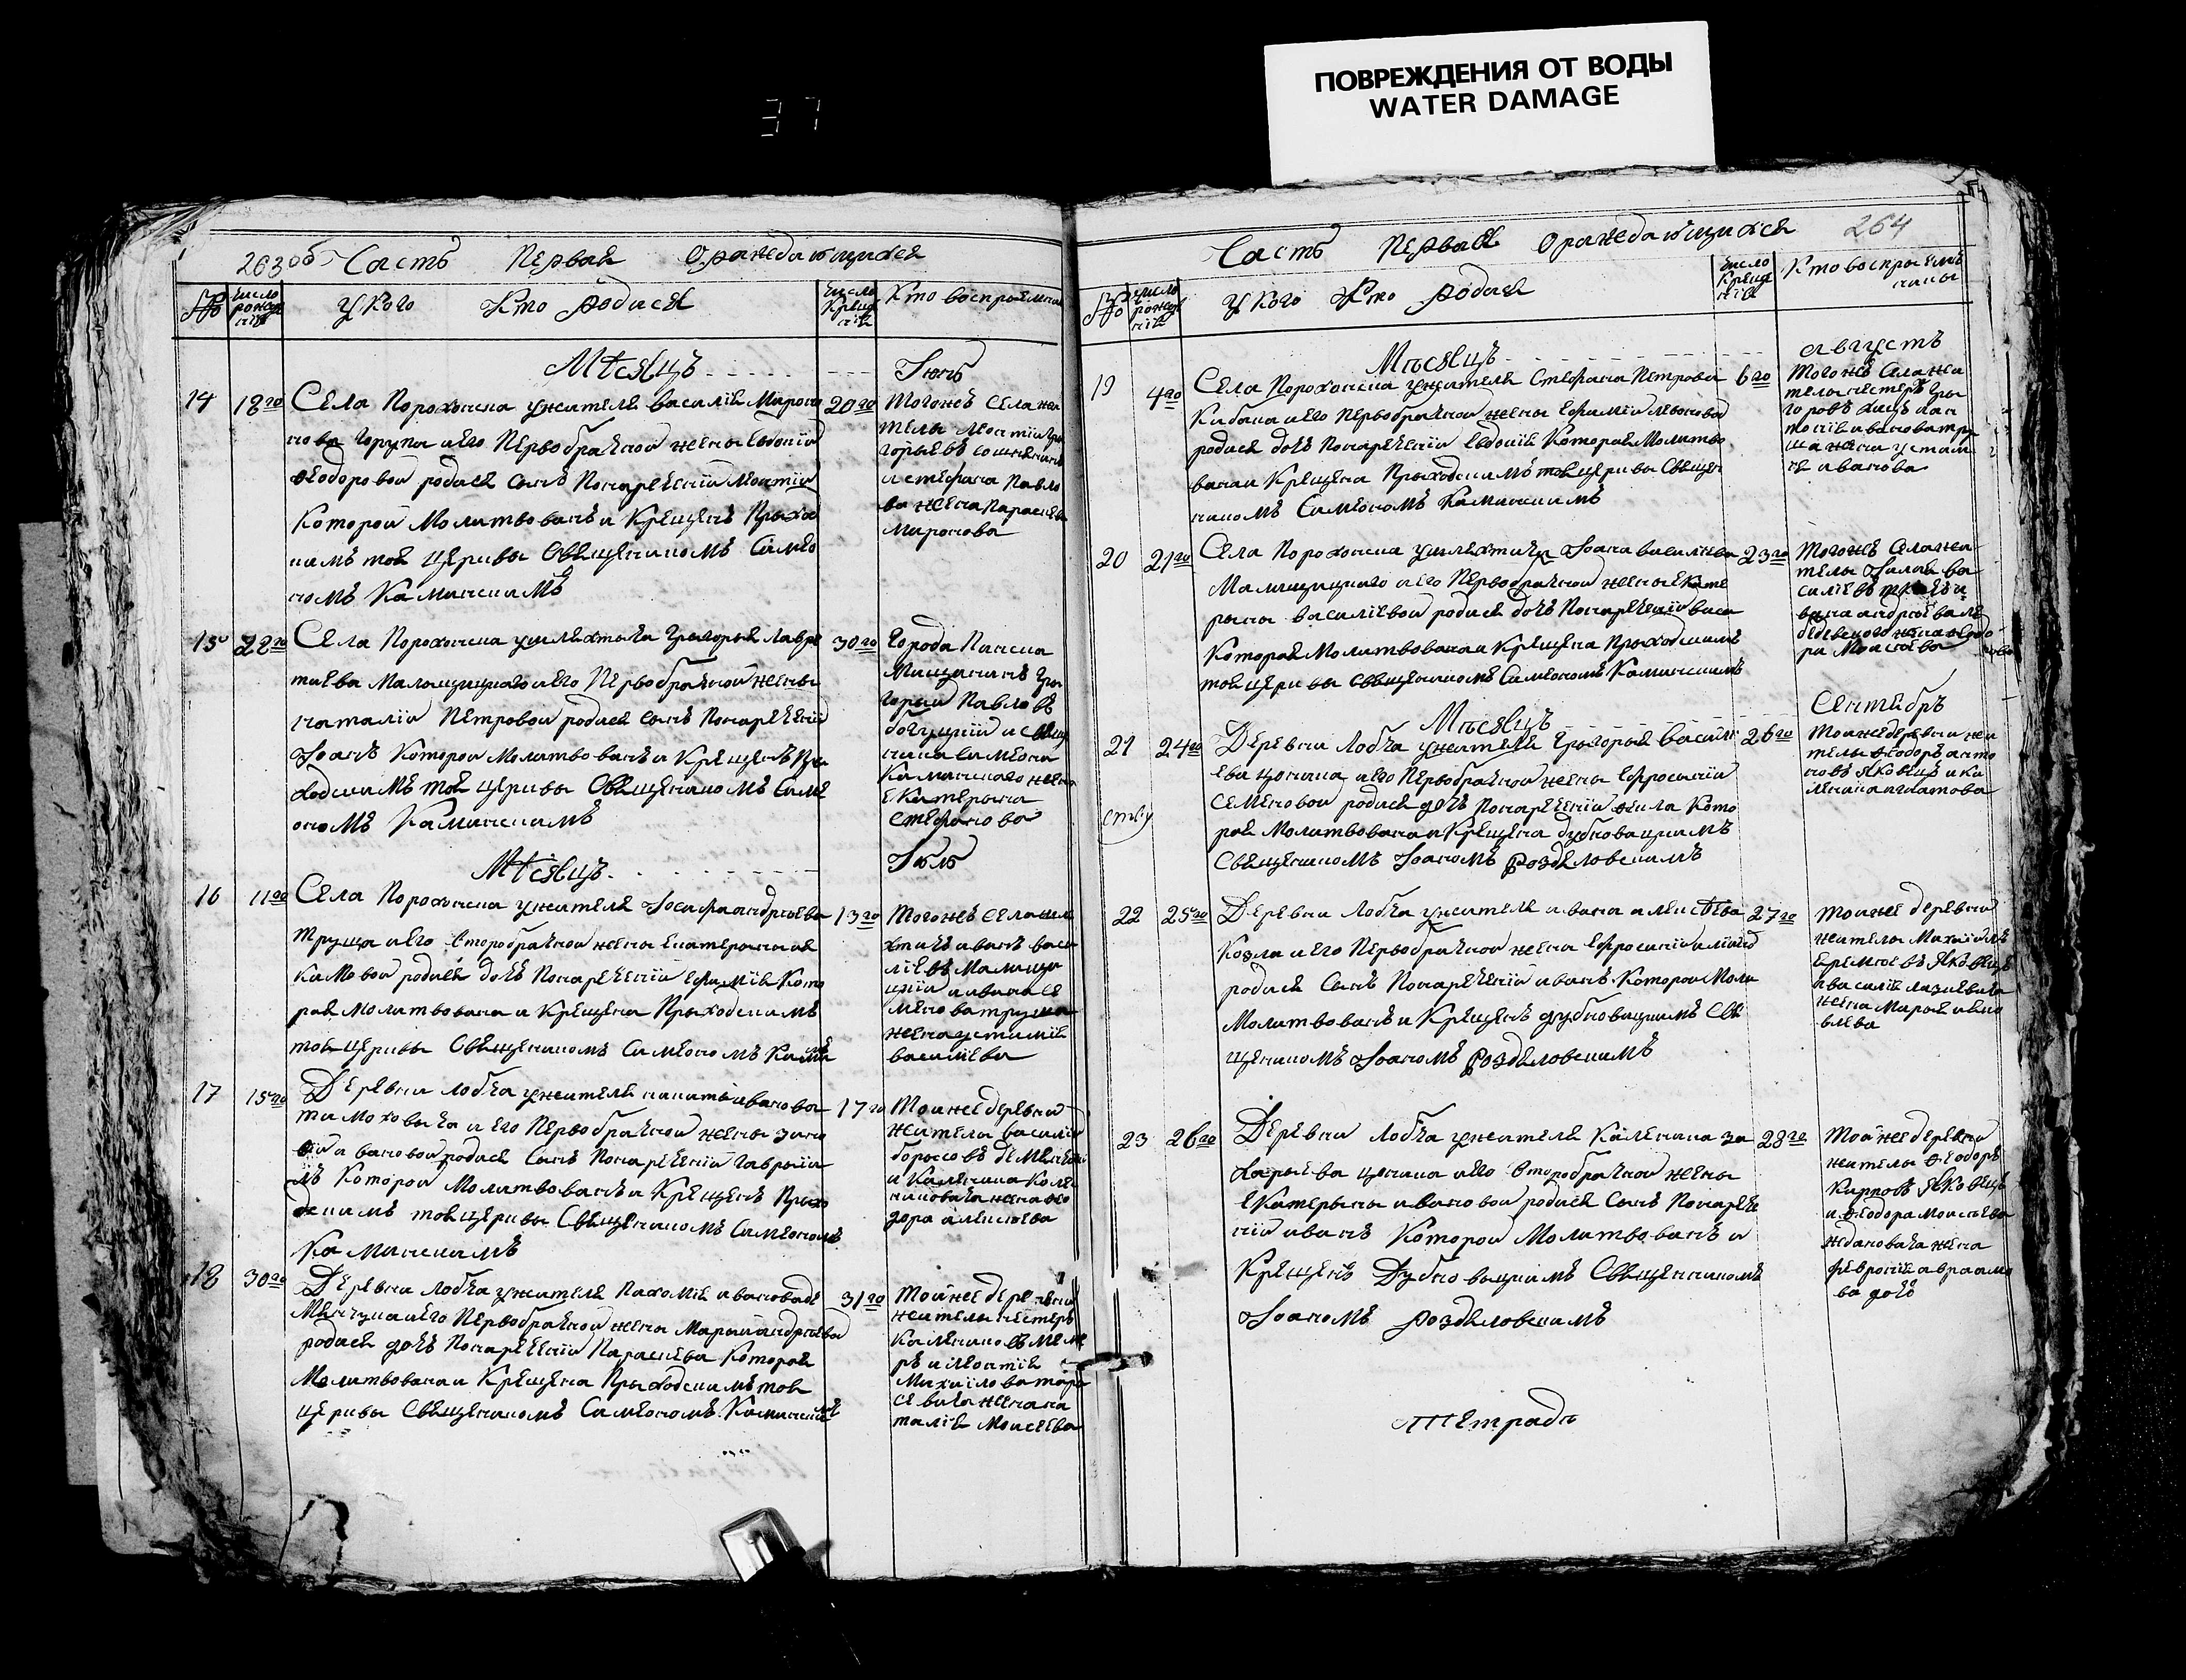 ПОВРЕЖДЕНИЯ ОТ ВОДЫ
WATER DAMAGE
37
263об Часть Первая Ораждающихся
число рожденія
У Кого Кто родился
число Крещенія
Кто воспріемни
Мѣсяцъ
Іюнь
14 18го Села Порохонска ужителя василія Миро 20го
нова Горупы иего Первобрачной жены Евдокіи
Ѳеодоровой родися Сынъ Понареченіи Леонтій
Которой Молитвованъ и Крещенъ Прыход
скимъ тоя церквы Священикомъ Симео
номъ Каминскимъ
Тогожъ села жи
тель Леонтій Гры
горыевъ
и Стефана Павло
ва жена Параскева
Миронова
15 28го Села Порохонска ушляхтыча Грыгорыя Лавре 30го
тиева Малощицкаго иего Первобрачной жены
наталіи Петровой родися сынъ Понареченіи
Іоанъ Которой Молитвованъ и Крещенъ Пры
ходскимъ тоя церквы Священикомъ Симе
ономъ Каминскимъ
Города Пинска
Мищанинъ Гры
горый Павловъ
и свяще
ника Симеона
Каминскаго жена
Екатерына
Стефанова
Мѣсяцъ
Іюль
16 11го Села Порохонска ужителя Іосифа андреева 13го
Труща иего второбрачной жены Екатерины
Кимовой родися дочь Понареченіи Ефимія Кото
рая Молитвована и Крещена Прыходскимъ
тоя церквы Священикомъ Симеономъ Камин
Тогожъ села шля
хтичъ иванъ васи
ліевъ Малищи
цкій и ивана Се
менова труща
жена устимія
василіева
17 15го Деревни Лобча ужителя никиты иванова 17го
тимоховыча и его Первобрачной жены зино
віи ивановой родися Сынъ Понареченіи Гаврыи
лъ Которой Молитвованъ и Крещенъ Прыхо
дскимъ тоя церквы Священикомъ Симеономъ
Каминскимъ
Тойже деревни
житель василій
борысовъ
и Каленика Кале
никовича жена Ѳео
дора алексіева
18 30го Деревни Лобча ужителя Пахомія иванова де
менчука иего Первобрачной жены Марыи андреевой
родися дочь Понареченіи Параскева Которая
Молитвована и Крещена Прыходскимъ тоя
церквы Священикомъ Симеономъ Каминскимъ
31го
Тойже деревни
житель нестеръ
Калениковъ
и Леонтія
Михайлова тара
севича жена на
талія Моисеева
Часть Первая Ораждающихся 264
число рожденія
У Кого Кто родися
число Крещенія
Кто воспріемникы
Мѣсяцъ
августъ
19 4го Села Порохонска ужителя Стефана Петрова 6го
Кибана иего Первобрачной жены Ефиміи Леоновой
родися дочь Понареченіи Евдокія Которая Молитво
вана и Крещена Прыходскимъ тоя церквы Священ
никомъ Симеономъ Каминскимъ
Тогожъ Села жи
тель нестеръ Гры
горовъ
иванова тру
ша жена устим
ія иванова
20 21го Села Порохонска ушляхтича Іоана василіева 23го
Малищицкого иего Первобрачной жены Екате
рыны василіевой родися дочь Понареченіи васа
Которая Молитвована и Крещена Прыходскимъ
тоя церквы священикомъ Симеономъ Каминскимъ
Тогожъ Села жи
тель
силіевъ
вана андреева
жена Ѳеодо
ра Моисіева
Мѣсяцъ
Сентябръ
21 24го Деревни Лобча ужителя Грыгорыя василі 26го
ева цыкина иего Первобрачной жены Ефросиніи
Семеновой родися дочь Понареченіи Ѳекла Кото
рая Молитвована и Крещена дубновицкимъ
Священикомъ Іоаномъ Роздяловскимъ
Тойже деревни жи
тель Ѳеодоръ анто
новъ Яковецъ и ки
ліянна игнатова
22 25го Деревни Лобча ужителя ивана алексіева 27го
Козла и его Первобрачной жены Ефросиніи
родися Сынъ Понареченіи иванъ Которой Моли
Молитвованъ и Крещенъ дубновицкимъ Свя
щеникомъ Іоаномъ Роздяловскимъ
Тойже деревни
житель Михаилъ
Еремѣевъ Яковецъ
и василія
жена Марыя
влева
23 26го Деревни Лобча ужителя Каленика за 28го
харыева цыкина иего второбрачной жены
Екатерыны ивановой родися Сынъ Понарече
ніи иванъ Которой Молитвованъ и
Крещенъ Дубновыцкимъ Священникомъ
Іоаномъ Роздяловскимъ
Тойже деревни
житель Ѳеодоръ
Карповъ Яковецъ
и Ѳеодора Моисѣева
ждановича жена
февронія авраамо
ва дочь
Тетрадь